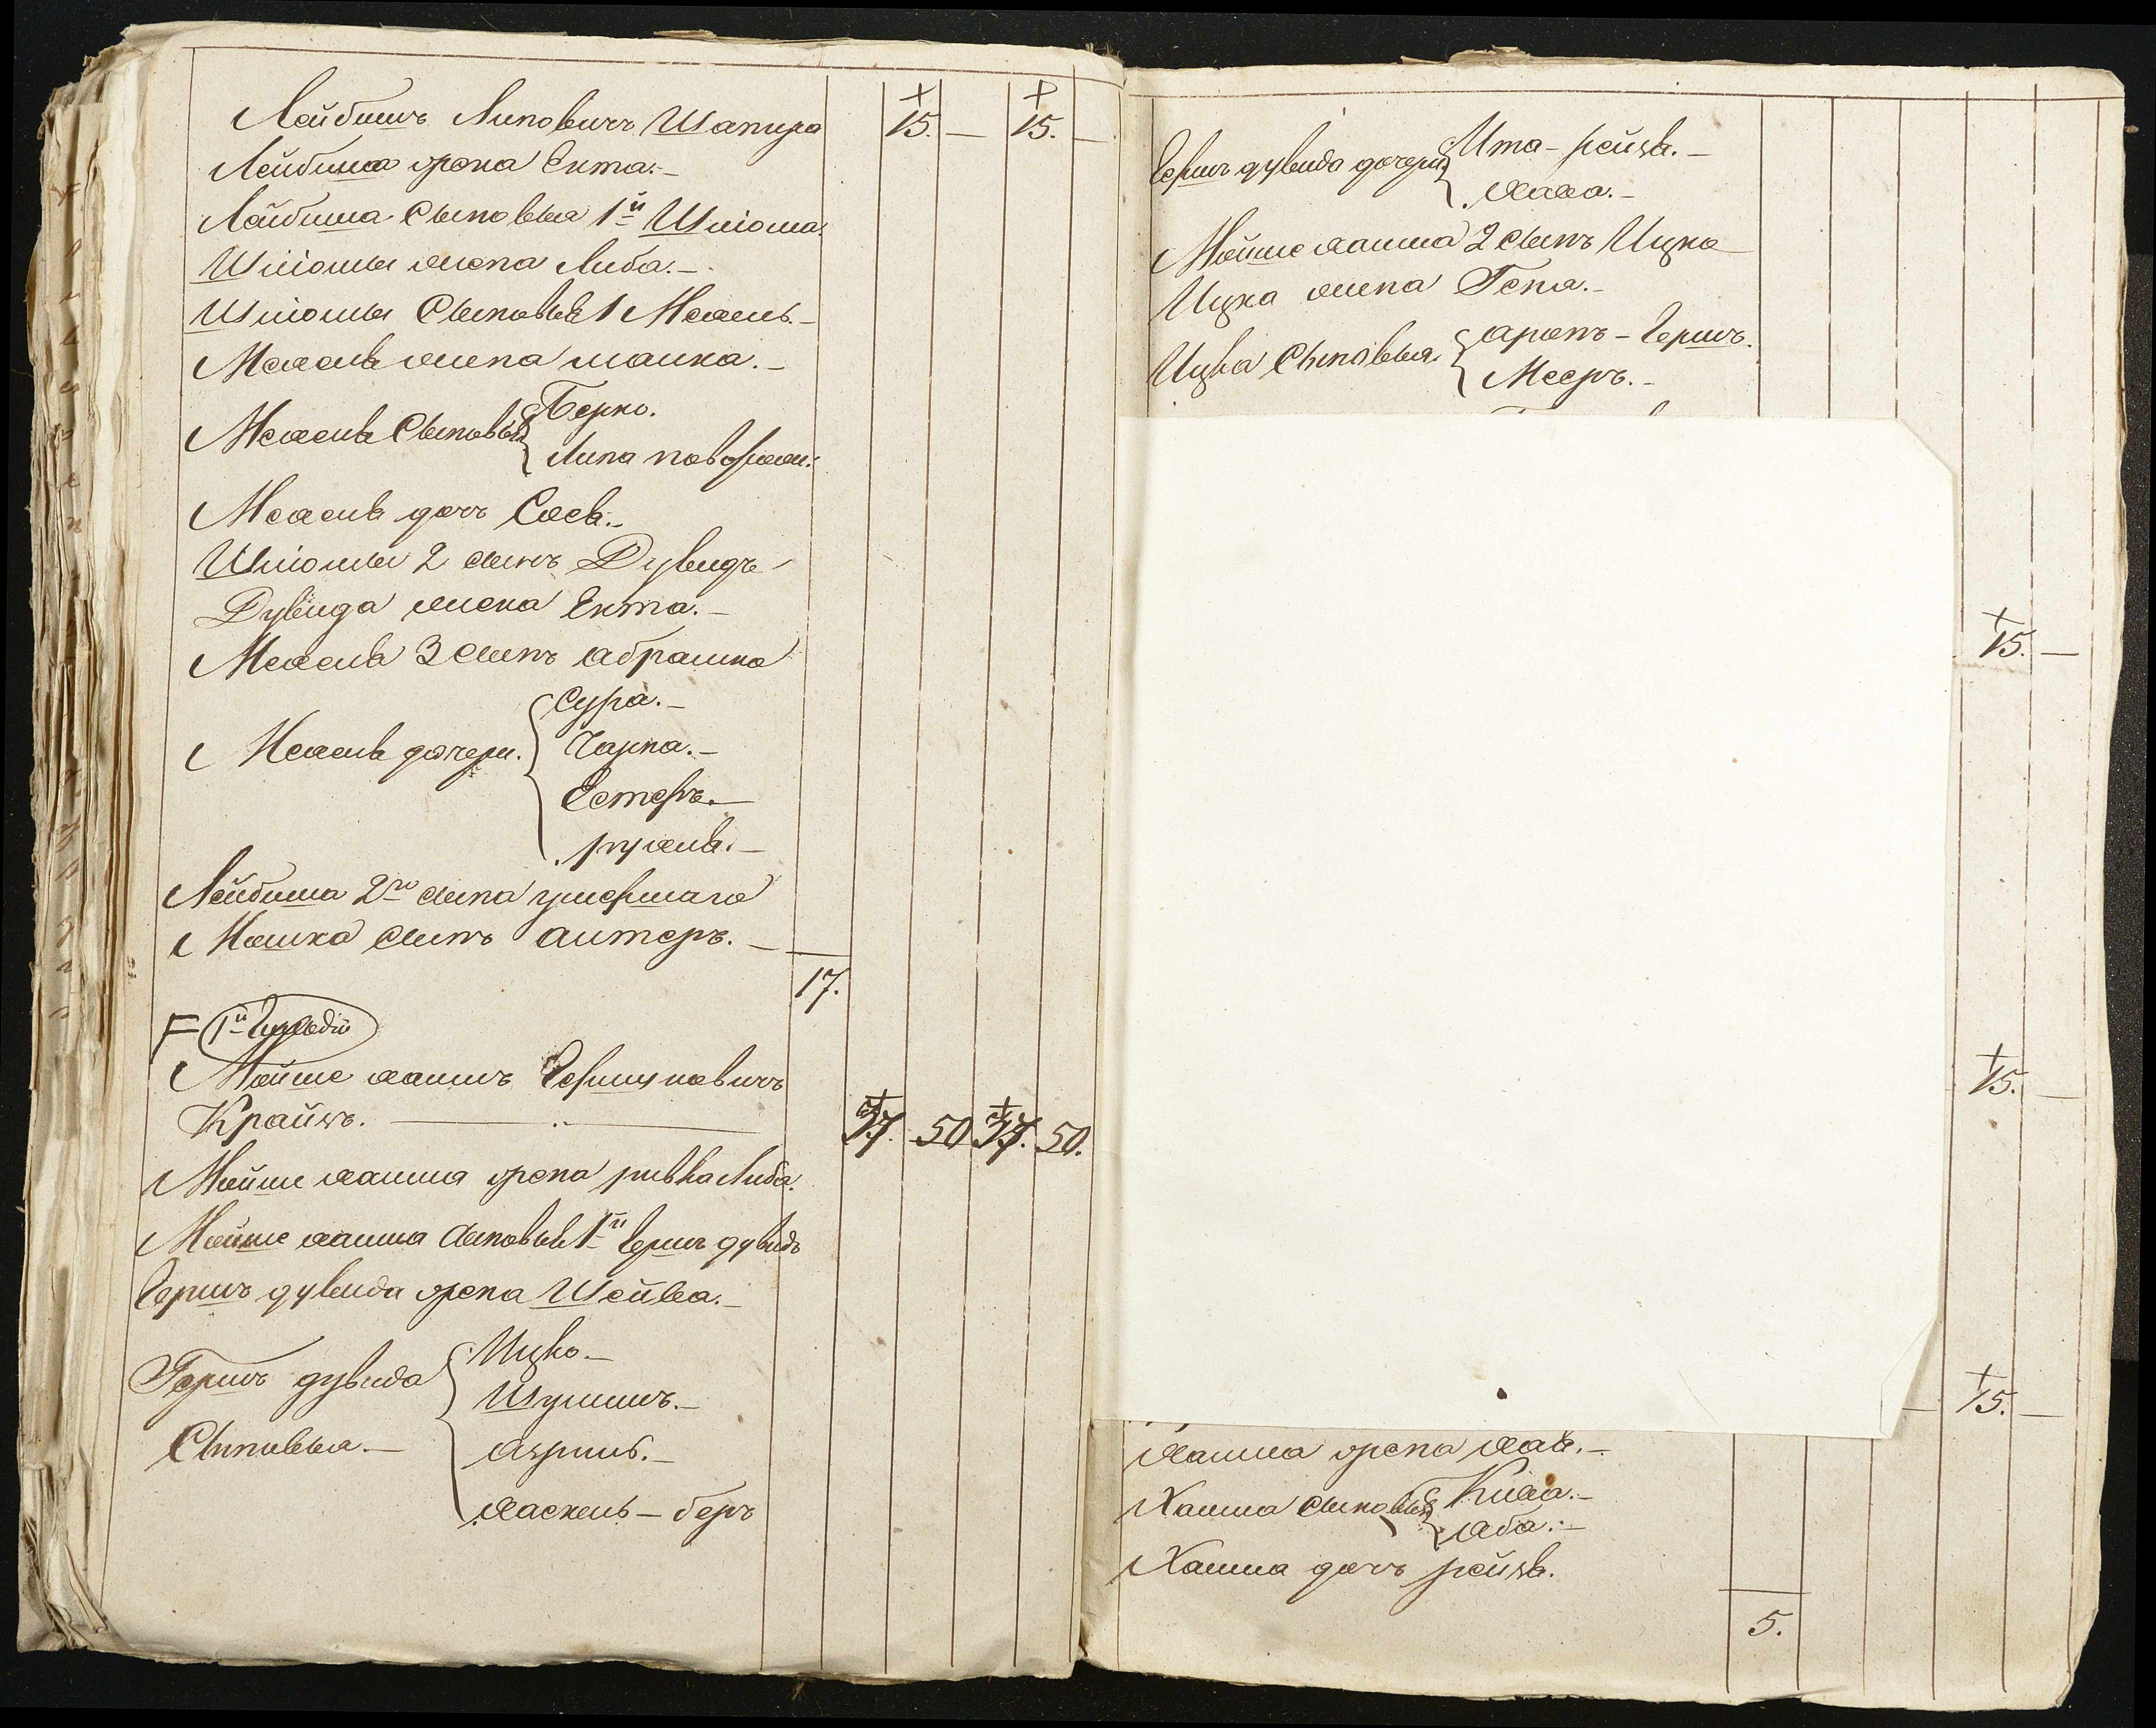 Лейбишъ Липовичъ Шапира 15. — 15. —
Лейбиша жена Ента. —
Лейбиша Сыновья 1й Шлiома.
Шлiомы жена Либа. —
Шлiомы Сыновья 1 Мехель. —
Мехеля жена малка. —
Мехеля Сыновья Берко.
Липа
Мехеля дочь Сося. —
Шлiомы 2 сынъ Дувидъ
Дувида жена Ента. —
Мехеля 3 сынъ абрамко
Сура. —
Мехеля дочери. Чарна. —
Естеръ. —
рухля. —
Лейбиша 2го сына умершаго
Мошка сынъ алтеръ. —
17.
1й
Мойше хаимъ Гершуновичъ
Крайзъ. — 37. 50 37. 50.
Мойше хаима жена ривка Либа.
Мойше хаима сыновья 1й Гершъ дувидъ
Гершъ дувида жена Шейва. —
Гершъ дувида Ицко. —
Шулимъ. —
Сыновья. —
хаскель — беръ
Гершъ дувида дочери Ита — рейзя. —
хана. —
Мойше хаима 2 сынъ Ицко
Ицка жена Геня. —
Ицка Сыновья аронъ — Гершъ.
Мееръ. —
15. —
15. —
15. —
хаима жена хая. —
Хаима сыновья
аба. —
Хаима дочь рейзя.
5.